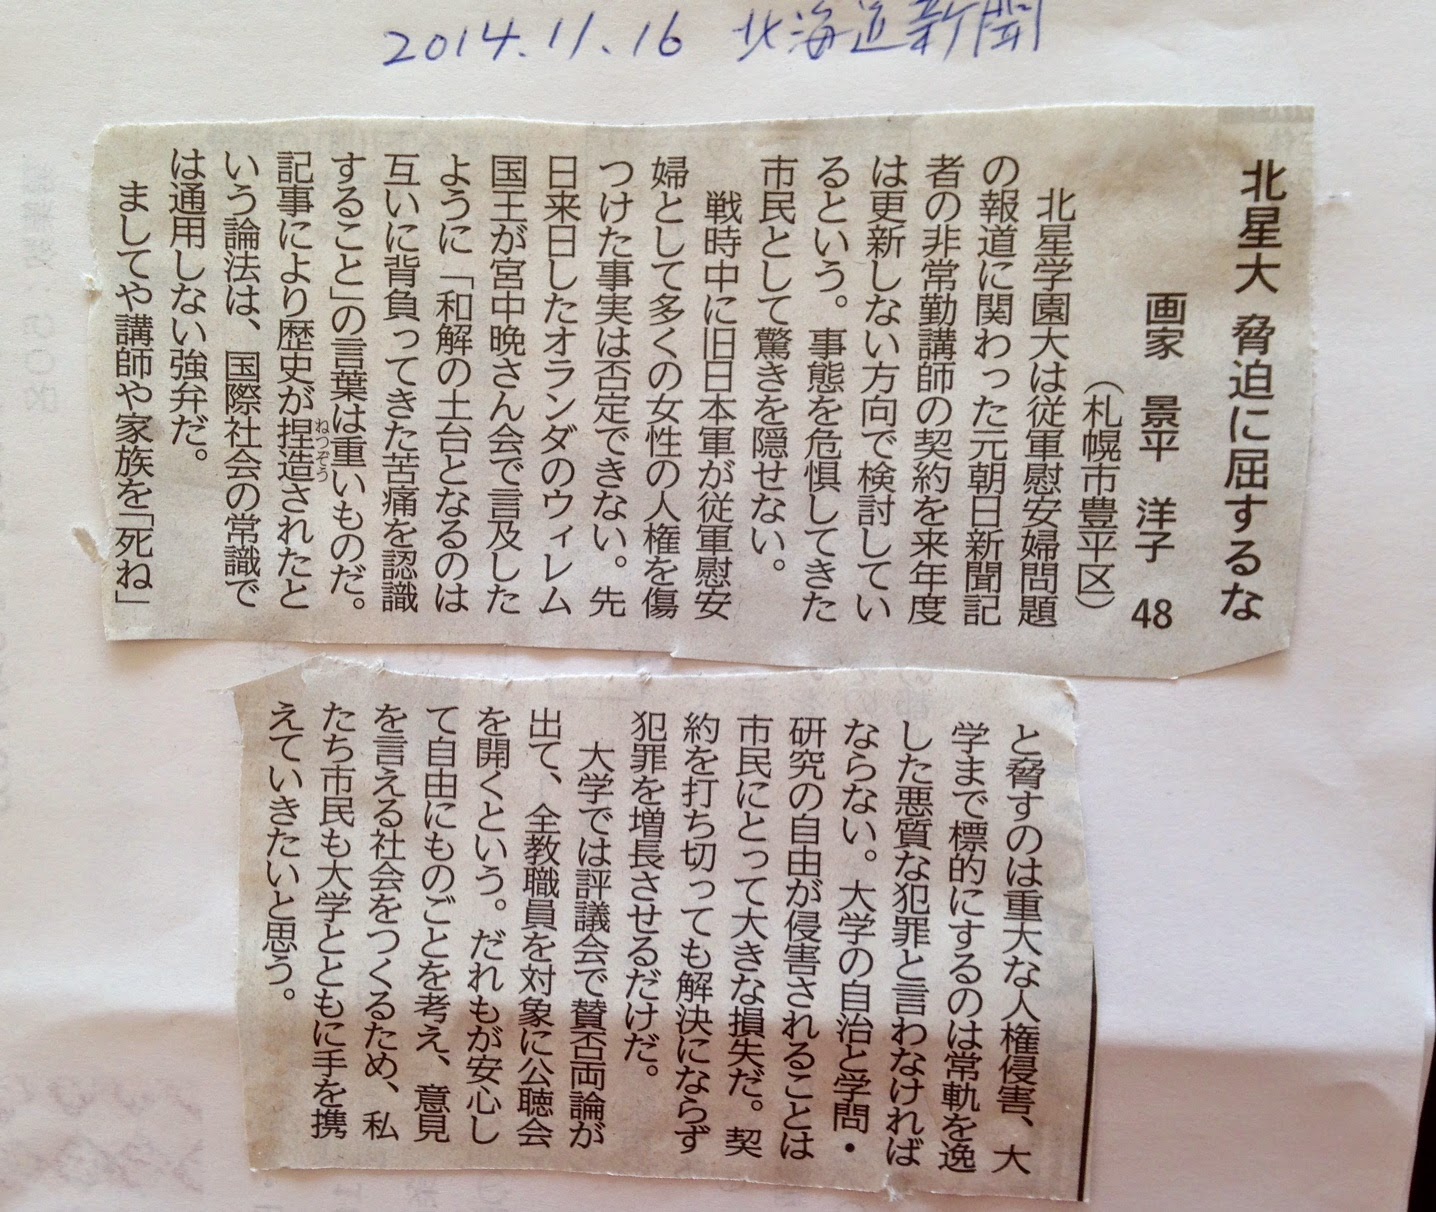 2014.11.16 北海道新聞
北星大 脅迫に屈するな
画家 景平 洋子 48
(札幌市豊平区)
北星学園大は従軍慰安婦問題
の報道に関わった元朝日新聞記
者の非常勤講師の契約を来年度
は更新しない方向で検討してい
るという。事態を危惧してきた
市民として驚きを隠せない。
戦時中に旧日本軍が従軍慰安
婦として多くの女性の人権を傷
つけた事実は否定できない。先
日来日したオランダのウィレム
国王が宮中晩さん会で言及した
ように「和解の土台となるのは
互いに背負ってきた苦痛を認識
すること」の言葉は重いものだ。
記事により歴史が捏造されたと
ねつぞう
いう論法は、国際社会の常識で
は通用しない強弁だ。
ましてや講師や家族を「死ね」
と脅すのは重大な人権侵害、大
学まで標的にするのは常軌を逸
した悪質な犯罪と言わなければ
ならない。大学の自治と学問・
研究の自由が侵害されることは
市民にとって大きな損失だ。契
約を打ち切っても解決にならず
犯罪を増長させるだけだ。
大学では評議会で賛否両論が
出て、全教職員を対象に公聴会
を開くという。だれもが安心し
て自由にものごとを考え、意見
を言える社会をつくるため、私
たち市民も大学とともに手を携
えていきたいと思う。